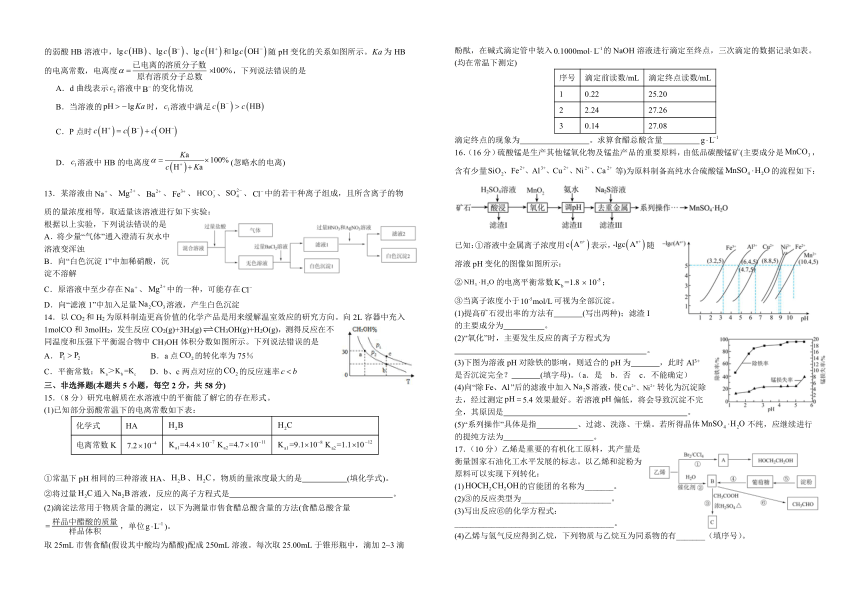 的弱酸 HB 溶液中，lg c(HB)、lg c(B⁻)、lg c(H⁺)和lg c(OH⁻)随 pH 变化的关系如图所示。Ka 为 HB
的电离常数，电离度 α= 已电离的溶质分子数/原有溶质分子总数 ×100%，下列说法错误的是
A．d 曲线表示 c₂ 溶液中B⁻的变化情况
B．当溶液的pH＞−lg Ka时，c₁溶液中满足 c(B⁻)＞c(HB)
C．P 点时 c(H⁺)=c(B⁻)+c(OH⁻)
D．c₁溶液中 HB 的电离度 α= Ka/(c(H⁺)+Ka) ×100% (忽略水的电离)
13．某溶液由Na⁺、Mg²⁺、Ba²⁺、Fe³⁺、HCO₃⁻、SO₄²⁻、Cl⁻中的若干种离子组成，且所含离子的物
质的量浓度相等，取适量该溶液进行如下实验：
根据以上实验，下列说法错误的是
A．将少量“气体”通入澄清石灰水中
溶液变浑浊
B．向“白色沉淀 1”中加稀硝酸，沉
淀不溶解
混合溶液
过量盐酸
气体
无色溶液
过量BaCl₂溶液
滤液1
白色沉淀1
过量HNO₃和AgNO₃溶液
滤液2
白色沉淀2
C．原溶液中至少存在Na⁺、Mg²⁺中的一种，可能存在Cl⁻
D．向“滤液 1”中加入足量Na₂CO₃溶液，产生白色沉淀
14．以 CO₂和 H₂ 为原料制造更高价值的化学产品是用来缓解温室效应的研究方向。向 2L 容器中充入
1molCO 和 3molH₂，发生反应 CO₂(g)+3H₂(g)⇌CH₃OH(g)+H₂O(g)，测得反应在不
同温度和压强下平衡混合物中 CH₃OH 体积分数如图所示。下列说法错误的是
A．P₁＞P₂ B．a 点CO₂的转化率为 75%
C．平衡常数：K_b＞K_a=K_c D．b、c 两点对应的CO₂的反应速率c＜b
CH₃OH%
30
三、非选择题(本题共 5 小题，每空 2 分，共 58 分)
15．（8 分）研究电解质在水溶液中的平衡能了解它的存在形式。
(1)已知部分弱酸常温下的电离常数如下表：
化学式 HA H₂B H₂C
电离常数 K 7.2×10⁻⁴ Ka1=4.4×10⁻⁷ Ka2=4.7×10⁻¹¹ Ka1=9.1×10⁻⁸ Ka2=1.1×10⁻¹²
①常温下 pH 相同的三种溶液 HA、H₂B、H₂C，物质的量浓度最大的是____________(填化学式)。
②将过量H₂C通入Na₂B溶液，反应的离子方程式是____________。
(2)滴淀法常用于物质含量的测定，以下为测量市售食醋总酸含量的方法(食醋总酸含量
= 样品中醋酸的质量/样品体积，单位g·L⁻¹)。
取 25mL 市售食醋(假设其中酸均为醋酸)配成 250mL 溶液。每次取 25.00mL 于锥形瓶中，滴加 2~3 滴
酚酞，在碱式滴定管中装入0.1000mol·L⁻¹的 NaOH 溶液进行滴定至终点，三次滴定的数据记录如表。
(均在常温下测定)
序号 滴定前读数/mL 滴定终点读数/mL
1 0.22 25.20
2 2.24 27.26
3 0.14 27.08
滴定终点的现象为____________，求算食醋总酸含量________g·L⁻¹
16．(16 分)硫酸锰是生产其他锰氧化物及锰盐产品的重要原料，由低品碳酸锰矿(主要成分是MnCO₃，
含有少量SiO₂、Fe²⁺、Al³⁺、Cu²⁺、Ni²⁺、Ca²⁺等)为原料制备高纯水合硫酸锰MnSO₄·H₂O的流程如下：
H₂SO₄溶液 MnO₂ 氨水 Na₂S溶液
矿石→酸浸→氧化→调pH→去重金属→系列操作→MnSO₄·H₂O
滤渣Ⅰ 滤渣Ⅱ 滤渣Ⅲ
已知：①溶液中金属离子浓度用c(Aⁿ⁺)表示，-lgc(Aⁿ⁺)随
溶液 pH 变化的图像如图所示；
②NH₃·H₂O的电离平衡常数K_b=1.8×10⁻⁵；
③当离子浓度小于10⁻⁵mol/L可视为全部沉淀。
(1)提高矿石浸出率的方法有________(写出两种)；滤渣Ⅰ
的主要成分为__________。
(2)“氧化”时，主要发生反应的离子方程式为
____________。
-lgc(Aⁿ⁺)
Fe³⁺ Al³⁺ Cu²⁺ Ni²⁺ Fe²⁺ Mn²⁺
(3.2,5) (4.7,5) (6.4,5) (8.8,5) (10.4,5)
1 2 3 4 5 6 7 8 9 10 pH
(3)下图为溶液 pH 对除铁的影响，则适合的 pH 为________，此时 Al³⁺
是否沉淀完全？________(填字母)。(a．是 b．否 c．不能确定)
(4)向“除 Fe、Al”后的滤液中加入Na₂S溶液，使Cu²⁺、Ni²⁺转化为沉淀除
去，经过测定pH=5.4效果最好。若溶液pH偏低，将会导致沉淀不完
全，其原因是____________。
(5)“系列操作”具体是指________、过滤、洗涤、干燥。若所得晶体MnSO₄·H₂O不纯，应继续进行
的提纯方法为____________。
除铁率/% 锰损失率/% 除铁率 锰损失率 pH
17．（10 分）乙烯是重要的有机化工原料，其产量是
衡量国家石油化工水平发展的标志。以乙烯和淀粉为
原料可以实现下列转化：
乙烯 Br₂/CCl₄ ① A HOCH₂CH₂OH
H₂O 催化剂 ② B ④ 葡萄糖 ⑤ 淀粉
③ CH₃COOH 浓H₂SO₄ △ ⑥ CH₃CHO
C
(1)HOCH₂CH₂OH的官能团的名称为______。
(2)③的反应类型为____________。
(3)写出反应⑥的化学方程式：
____________。
(4)乙烯与氢气反应得到乙烷，下列物质与乙烷互为同系物的有______（填序号）。